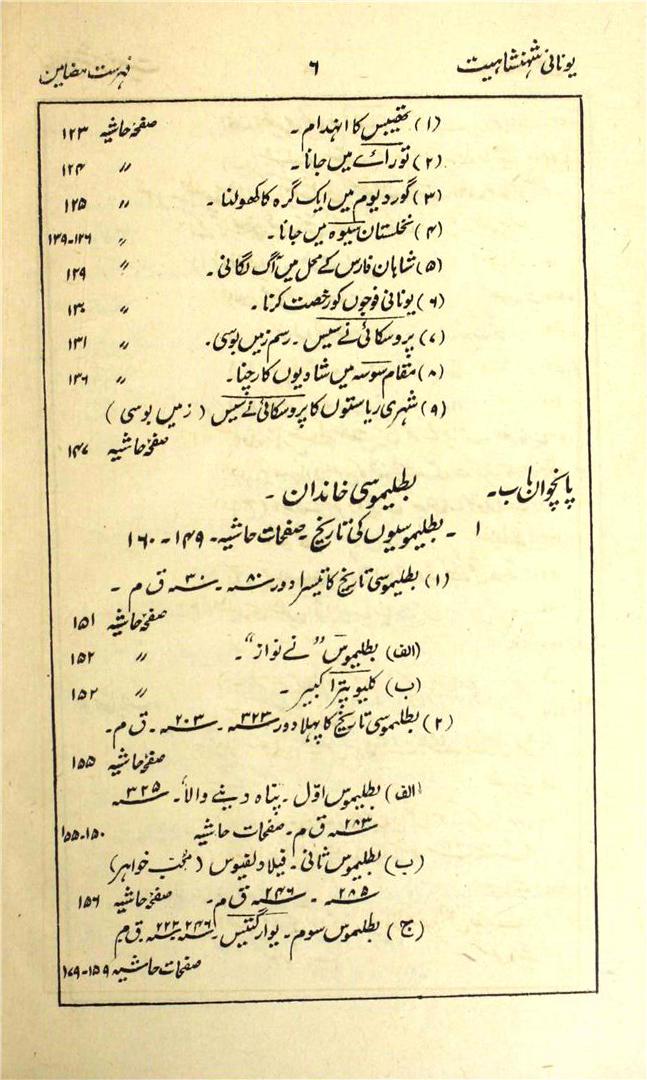 یونانی شہنشاہیت ۶ فہرست مضامین
(۱) تھیبس کا انہدام۔ صفحۂ حاشیہ ۱۲۳
(۲) ٹورائے میں جانا۔ 〃 ۱۲۴
(۳) گوردیوم میں ایک گرہ کا کھولنا۔ 〃 ۱۲۵
(۴) نخلستان سیوہ میں جانا۔ 〃 ۱۲۶-۱۳۹
(۵) شاہان فارس کے محل میں آگ لگانی۔ 〃 ۱۲۹
(۶) یونانی فوجوں کو رخصت کرنا۔ 〃 ۱۳۰
(۷) پروسکائی نے سیس۔ رسم زمیں بوسی۔ 〃 ۱۳۱
(۸) مقام سوسہ میں شادیوں کا رچنا۔ 〃 ۱۳۶
(۹) شہری ریاستوں کا پروسکائی نے سیس (زمیں بوسی)
صفحۂ حاشیہ ۱۴۷
پانچواں باب۔ بطلیموسی خاندان۔
۱۔ بطلیموسیوں کی تاریخ۔ صفحات حاشیہ۔ ۱۴۹-۱۶۰
(۱) بطلیموسی تاریخ کا تیسرا دور ۸۰ـ۔ ۳۰ـ ق م۔
صفحۂ حاشیہ ۱۵۱
(الف) بطلیموس ”نے نواز“۔ 〃 ۱۵۲
(ب) کلیوپٹرا کبیر۔ 〃 ۱۵۲
(۲) بطلیموسی تاریخ کا پہلا دور ۳۲۳ـ۔ ۲۰۳ـ۔ ق م۔
صفحۂ حاشیہ ۱۵۵
(الف) بطلیموس اوّل۔ پناہ دینے والا۔ ۳۲۵ـ
۲۸۳ـ ق م۔ صفحات حاشیہ ۱۵۰-۱۵۵
(ب) بطلیموس ثانی۔ فیلادلفیوس (محب خواہر)
۲۸۵ـ۔ ۲۴۶ـ ق م۔ صفحۂ حاشیہ ۱۵۶
(ج) بطلیموس سوم۔ یوارگتیس۔ ۲۴۶ـ ۲۲۲ـ ق م
صفحات حاشیہ ۱۵۹-۱۷۹